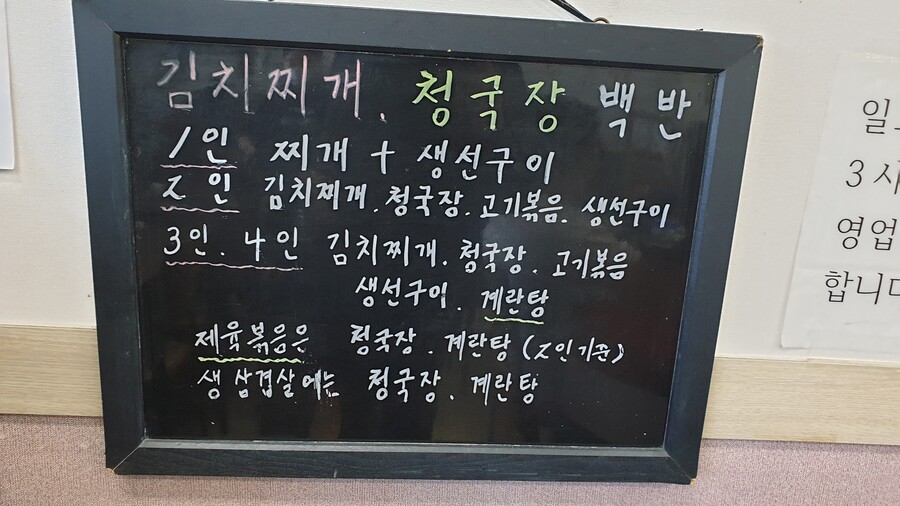 김치찌개. 청국장 백반
1인 찌개 + 생선구이
2인 김치찌개. 청국장. 고기볶음. 생선구이
3인. 4인 김치찌개. 청국장. 고기볶음
생선구이. 계란탕
제육볶음은 청국장. 계란탕 (2인기준)
생삼겹살에는 청국장. 계란탕
3시
영업
합니다